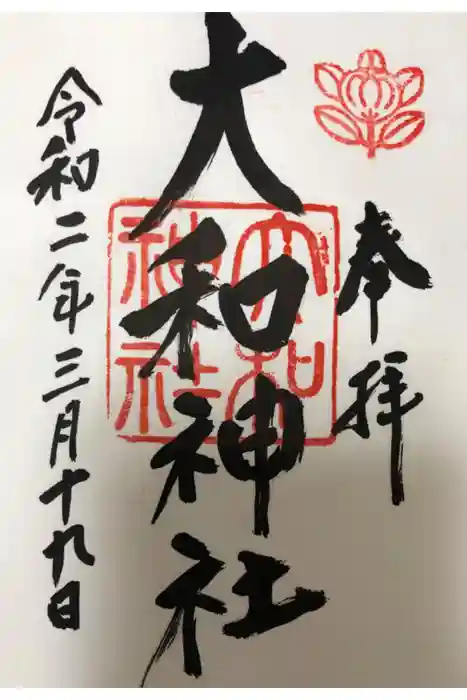 奉拝
大和神社
大和
神社
令和二年三月十九日